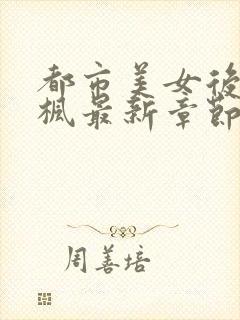 都市美女後
楓最新章節
周善培